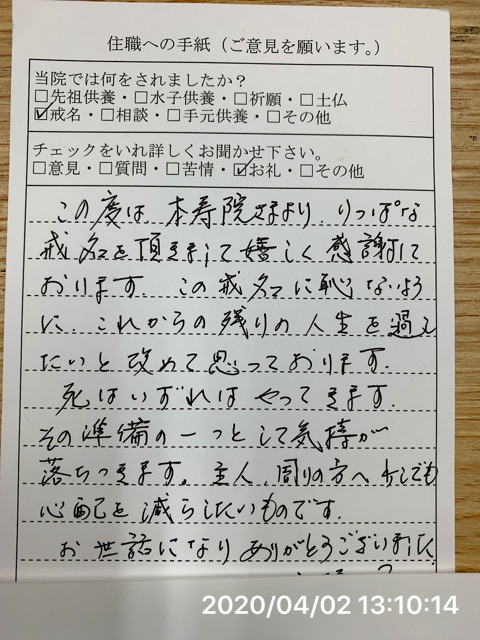 住職への手紙（ご意見を願います。）
当院では何をされましたか？
□先祖供養・□水子供養・□祈願・□土仏
☑戒名・□相談・□手元供養・□その他
チェックをいれ詳しくお聞かせ下さい。
□意見・□質問・□苦情・☑お礼・□その他
この度は、本寿院さまより、りっぱな
戒名を頂きまして嬉しく感謝して
おります。この戒名に恥じないよう
に、これからの残りの人生を過し
たいと改めて思っております。
死はいずれは やってきます。
その準備の一つとして気持が
落ちつきます。主人、周りの方へ少しでも
心配を減らしたいものです。
お世話になりありがとうございました
2020/04/02 13:10:14